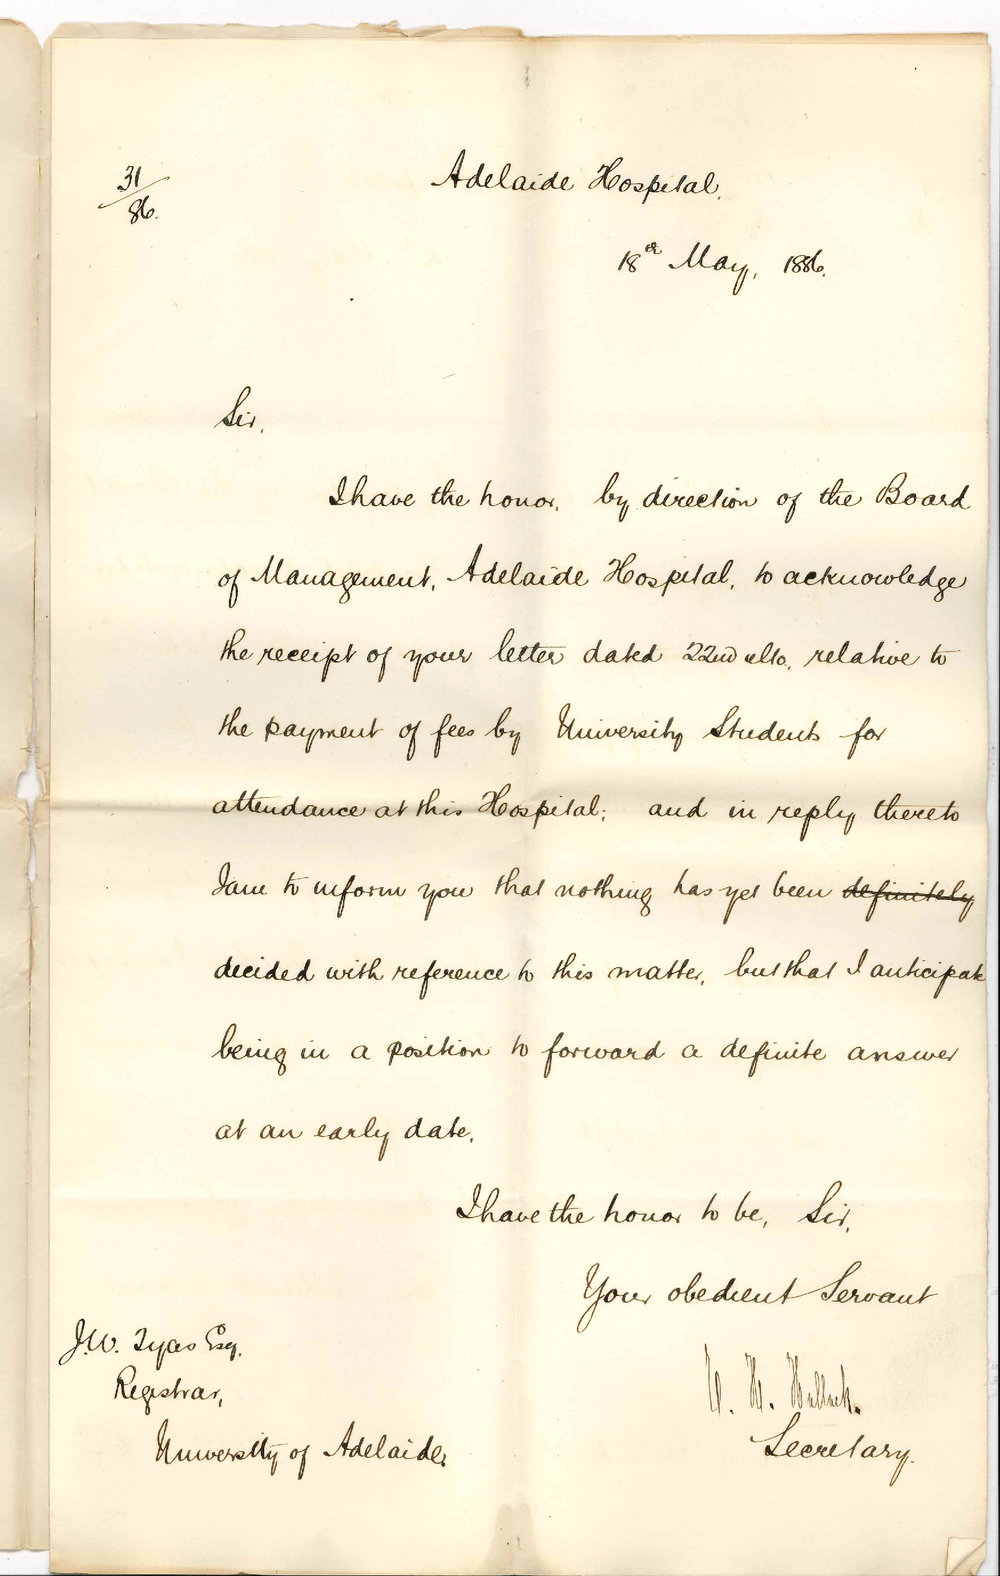 31/86.
Adelaide Hospital.
18th May, 1886.
Sir,
I have the honor, by direction of the Board
of Management, Adelaide Hospital, to acknowledge
the receipt of your letter dated 22nd ulto, relative to
the payment of fees by University Students for
attendance at this Hospital; and in reply thereto
I am to inform you that nothing has yet been definitely
decided with reference to this matter, but that I anticipate
being in a position to forward a definite answer
at an early date.
I have the honor to be, Sir,
Your obedient Servant
H.
Secretary.
J.W. Tyas Esq.
Registrar,
University of Adelaide.